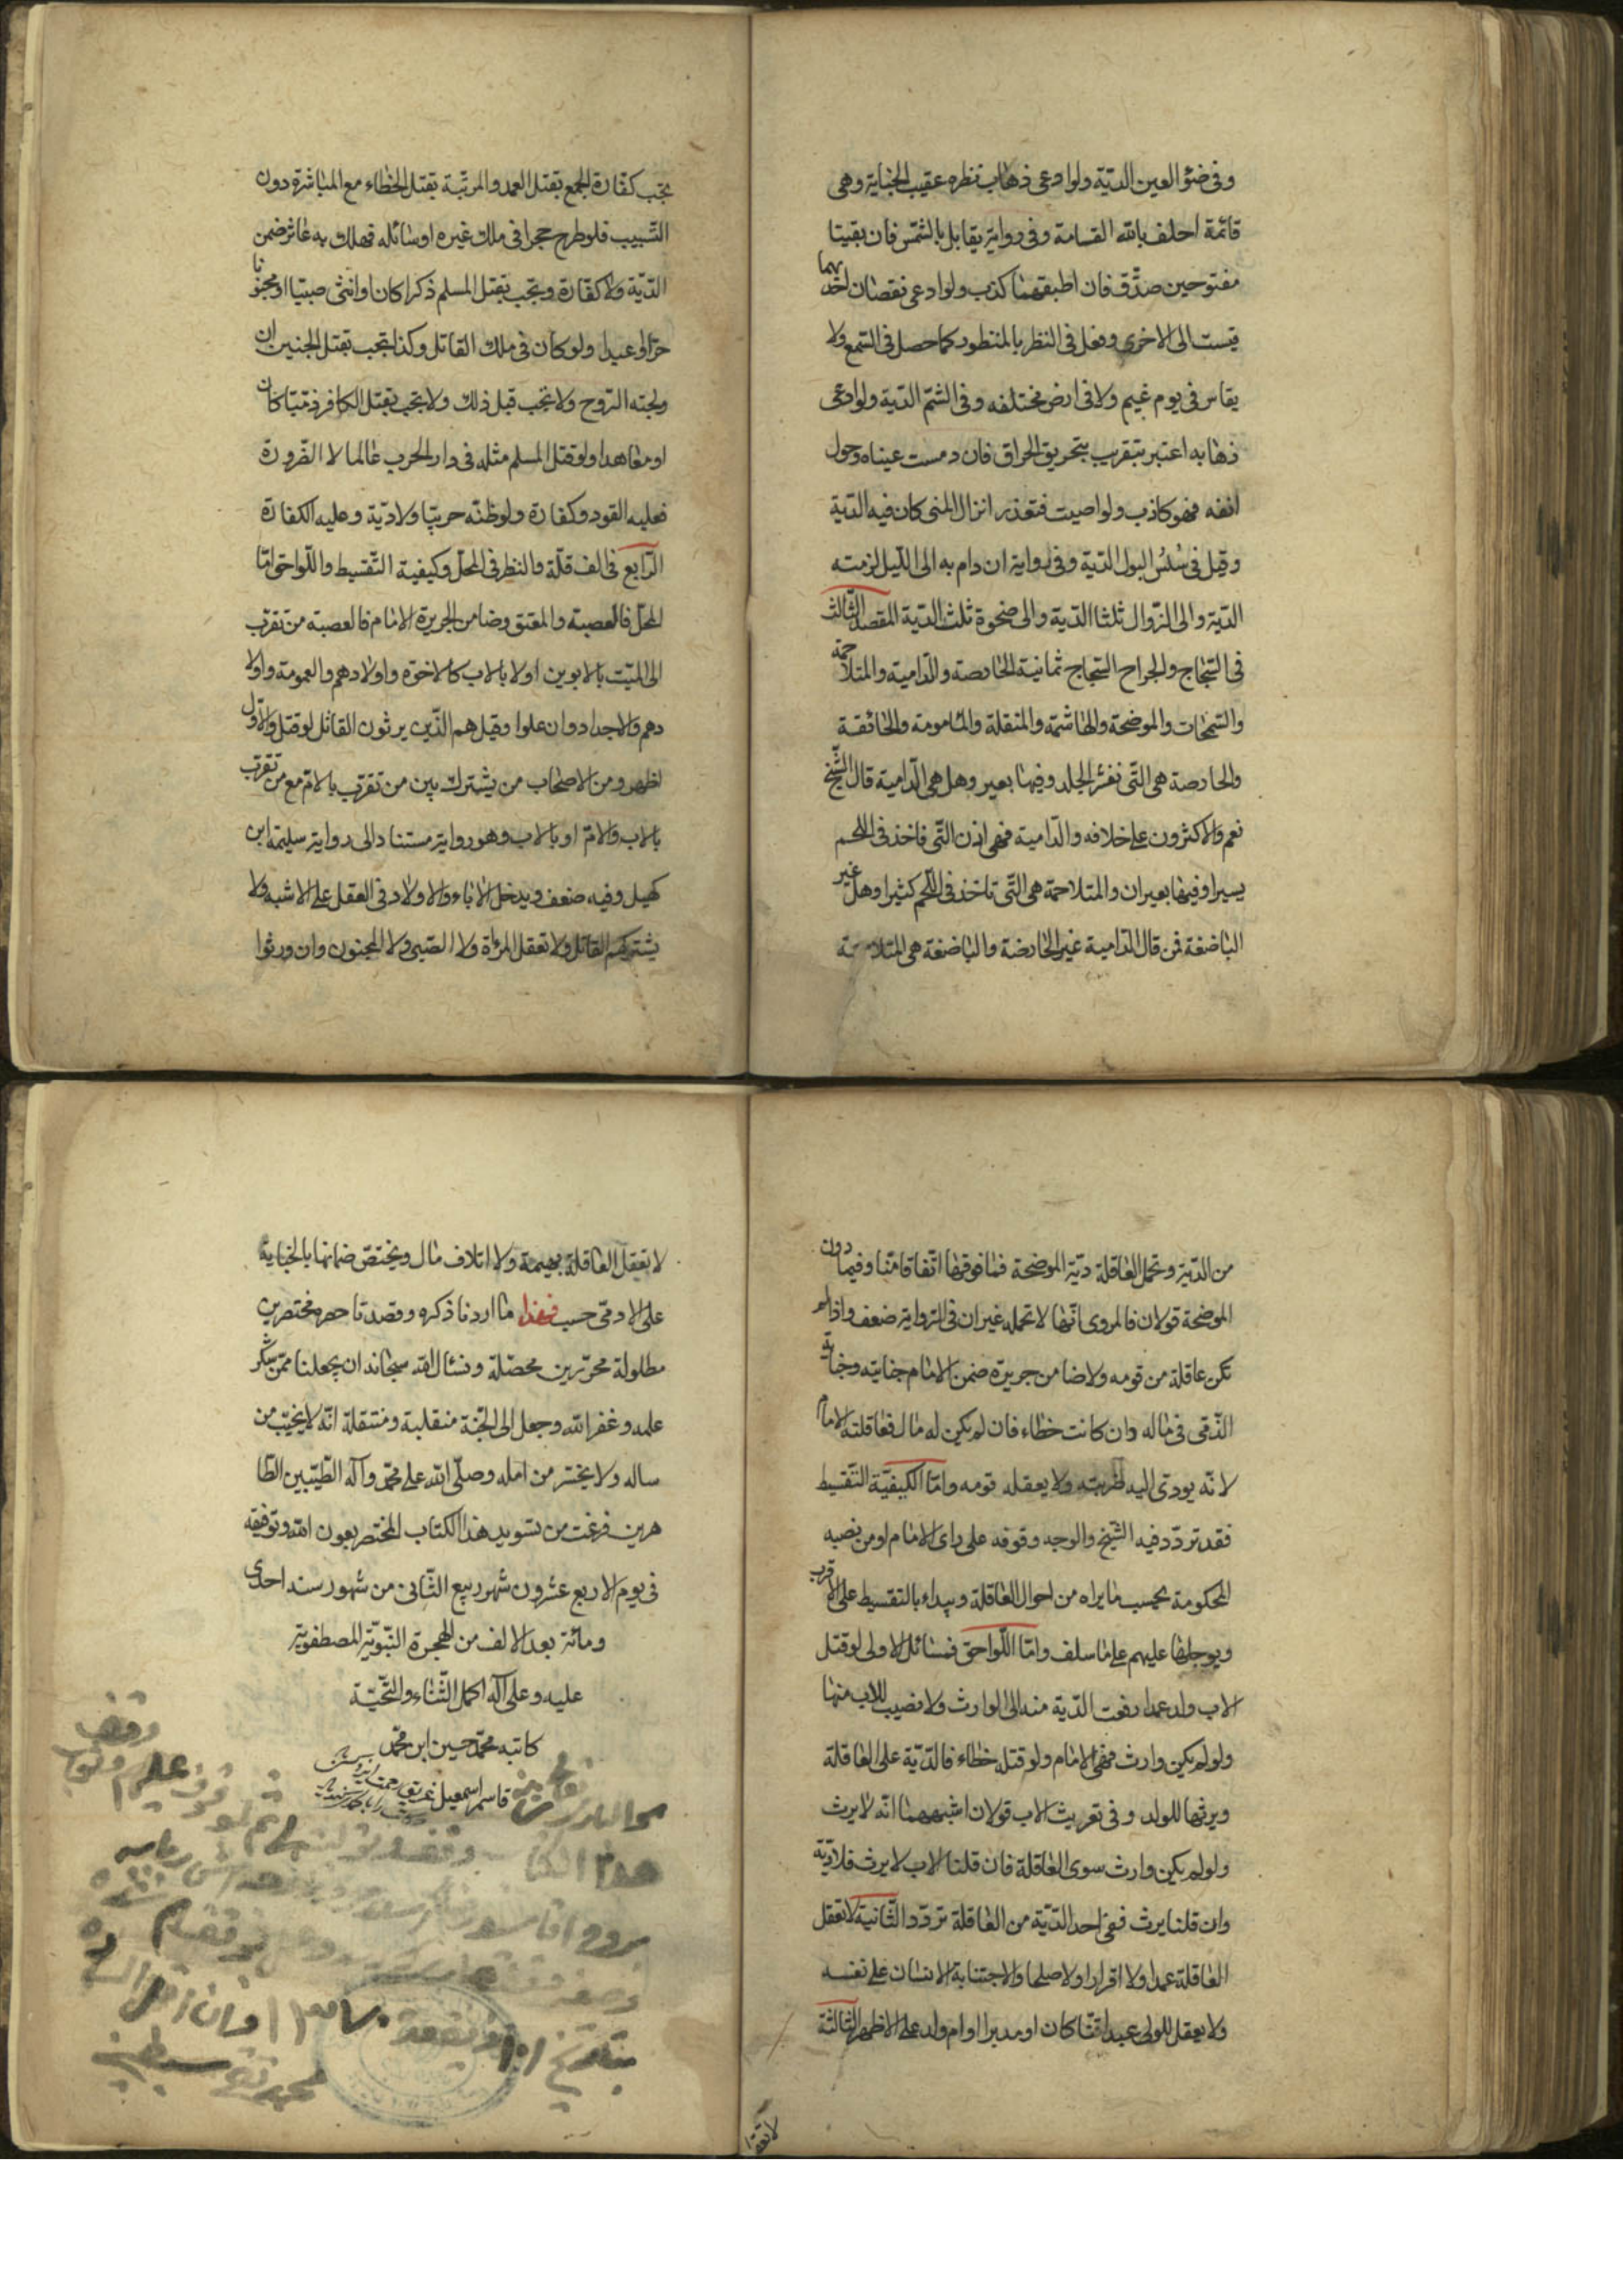 وفى ضئو العين الدّية ولو ادعى ذهاب نظره عقيب الجناية وهى
قائمة احلف بالله القسامة وفى رواية يقابل بالشمس فان بقيتا
مفتوحين صدّق فان اطبقهما كذب ولو ادعى نقصان احديهما
قيست الى الاخرى وفعل فى النظر بالمنظور كما حصل فى السّمع ولا
يقاس فى يوم غيم ولا فى ارض مختلفه وفى الشم الدّية ولو ادعى
ذهابه اعتبر بتقريب بتحريق الحراق فان دمست عيناه وحول
انفه فهو كاذب ولو اصيب فتعذر انزال المنى كان فيه الدّية
وقيل فى سلس البول الدّية وفى رواية ان دام به الى اللّيل لزمته
الدّية والى الزّوال ثلثا الدّية والى ضحوة ثلث الدّية المقصد الثّالث
فى الشجاج والجراح الشجاج ثمانية الحارصة والدّامية والمتلاحمة
والسّمحات والموضحة والهاشمة والمنقلة والمامومة والجائفة
والحارصة هى التّى تفشر الجلد وفيها بعير وهل هى الدّامية قال الشّيخ
نعم والاكثرون على خلافه والدّامية فهى اذن التّى فاخذ فى اللحم
يسيرا وفيها بعيران والمتلاحمة هى التّى تاخذ فى اللّحم كثيرا وهل غير
الباضعة فمن قال الدّامية غير الحارضة والباضعة هى المتلاحمة
تجب كفّارة الجمع بقتل العمد والمرتّبة بقتل الخطاء مع المباشرة دون
التّسبيب فلو طرح حجرا فى ملك غيره او سائله فهلك به عاثر ضمن
الدّية ولا كفّارة وتجب بقتل المسلم ذكرا كان او انثى صبيّا او مجنونا
حرّا او عبدا ولو كان فى ملك القاتل وكذا تجب بقتل الجنين ان
ولجته الرّوح ولا تجب قبل ذلك ولا تجب بقتل الكافر ذميّا كان
او معاهدا ولو قتل المسلم مثله فى دار الحرب عالما لا الضّرورة
فعليه القود وكفارة ولو ظنّه حربيّا ولا ديّة وعليه الكفارة
الرّابع فى الف قلّة والنظر فى المحلّ وكيفية التّقسيط واللّواحق امّا
المحلّ فالعصبة والمعتق وضامن الجريرة الامام فالعصبة من تقرّب
الى الميّت بالابوين اولا بالاب كالاخوة واولادهم والعمومة واولا
دهم والاجداد وان علوا وقيل هم الّذين يرثون القاتل لو قتل والاوّل
اظهر ومن الاصحاب من يشترك بين من تقرّب بالامّ مع من تقرّب
بالاب والامّ او بالاب وهو رواية مستنادا الى رواية سليمة ابن
كهيل وفيه ضعف ويدخل الاباء والاولاد فى العقل على الاشبه ولا
يشتركهم القاتل ولا تعقل المرءاة ولا الصّبى ولا المجنون وان ورثوا
من الدّية وتحمل العاقلة ديّة الموضحة فما فوقها اتّفاقا منّا وفيما دون
الموضحة قولان فالمروى انّها لا تحمله غير ان فى الرّواية ضعف واذا لم
تكن عاقلة من قومه ولا ضامن جريرة ضمن الامام جنايته وجناية
الذّمّى فى ماله وان كانت خطاء فان لم يكن له مال فعاقلته الامام
لانّه يودّى اليه ضريبته ولا يعقله قومه وامّا الكيفيّة التّقسيط
فقد تردّد فيه الشّيخ والوجه وقوفه على راى الامام او من نصبه
المحكومة بحسب ما يراه من احوال العاقلة ويبداء بالتقسيط على الاقرب
ويوجلها عليهم على ما سلف وامّا اللّواحق فمسائل الاولى لو قتل
الاب ولد عمدا دفعت الدّية منه الى الوارث ولا نصيب للاب منها
ولو لم يكن وارث فهى الامام ولو قتله خطاء فالدّيّة على العاقلة
ويرثها للولد وفى تعريث الاب قولان اشبههما انّه لا يرث
ولو لم يكن وارث سوى العاقلة فان قلنا الاب لا يرث فلا ديّة
وان قلنا يرث ففى احد الدّيّة من العاقلة تردّد الثّانية لا تعقل
العاقلة عمدا ولا اقرارا ولا صلحا والاجتنابة الانسان على نفسه
ولا يعقل للولى عبدا قنّا كان او مدبرا او ام ولد على الاظهر الثالثة
لا تعقل
لا تعقل العاقلة بهيمة ولا اتلاف مال ويختصّ ضمانها بالجناية
على الادمّى حسب فهذا ما اردنا ذكره وقصدنا حصره مختصرين
مطلولة محرّرين محصّلة ونسئال الله سبحانه ان يجعلنا ممّن شكر
علمه وغفر الله وجعل الى الجنّة منقلبة ومنتقلة انّه لا يخيّب من
ساله ولا يخسر من امله وصلّى الله على محمّد وآله الطّيّبين الطّا
هرين فرغت من تسويد هذا الكتاب المختصر بعون الله وتوفيقه
فى يوم الاربع عشرون شهر ربيع الثّانى من شهور سنه احدى
ومائة بعد الالف من الهجرة النّبويّة المصطفويّة
عليه وعلى آله اكمل الثّناء والتّحيّة
كاتبه محمّد حسين ابن محمّد
قاسم اسمعيل
وقف
هذا الكتاب
بتاريخ
محمد تقى